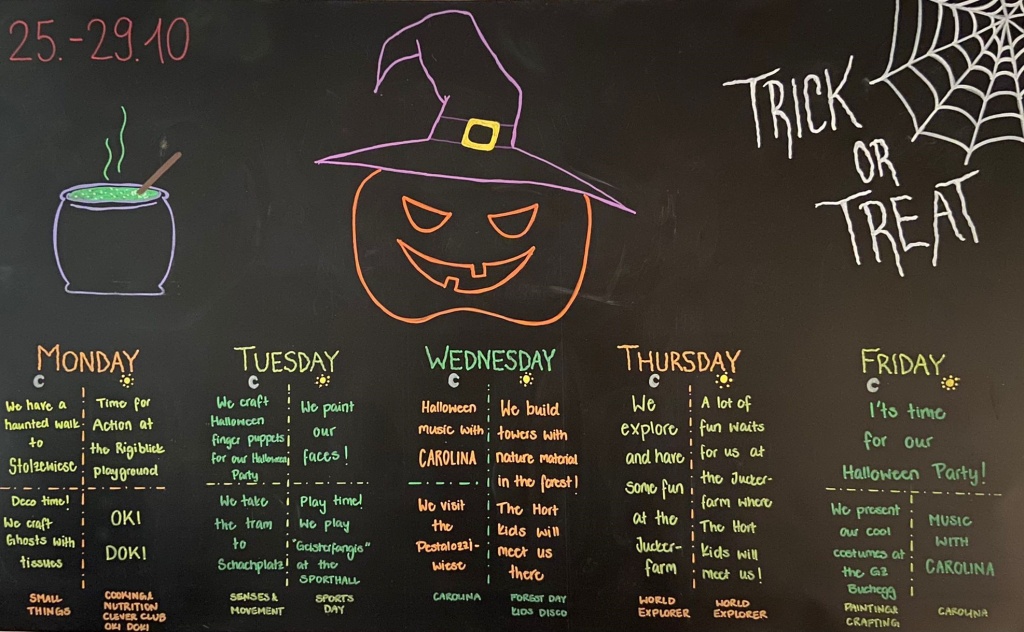 25.-29.10
TRICK
OR
TREAT
MONDAY
We have a
haunted walk
to
Stolzewiese
Time for
Action at
the Rigiblick
playground
Deco time!
We craft
Ghosts with
tissues
OKI
DOKI
SMALL
THINGS
COOKING&
NUTRITION
CLEVER CLUB
OKI DOKI
TUESDAY
We craft
Halloween
finger puppets
for our Halloween
Party
We paint
our
faces!
We take
the tram
to
Schachplatz
Play time!
We play
"Geisterfangis"
at the
SPORTHALL
SENSES&
MOVEMENT
SPORTS
DAY
WEDNESDAY
Halloween
music with
CAROLINA
We build
towers with
nature material
in the forest!
We visit
the
Pestalozzi-
wiese
The Hort
kids will
meet us
there
CAROLINA
FOREST DAY
KIDS DISCO
THURSDAY
We
explore
and have
some fun
at the
Jucker-
farm
A lot of
fun waits
for us at
the Jucker-
farm where
The Hort
kids will
meet us!
WORLD
EXPLORER
WORLD
EXPLORER
FRIDAY
I'ts time
for our
Halloween Party!
We present
our cool
costumes at
the GZ
Buchegg
MUSIC
WITH
CAROLINA
PAINTING&
CRAFTING
CAROLINA